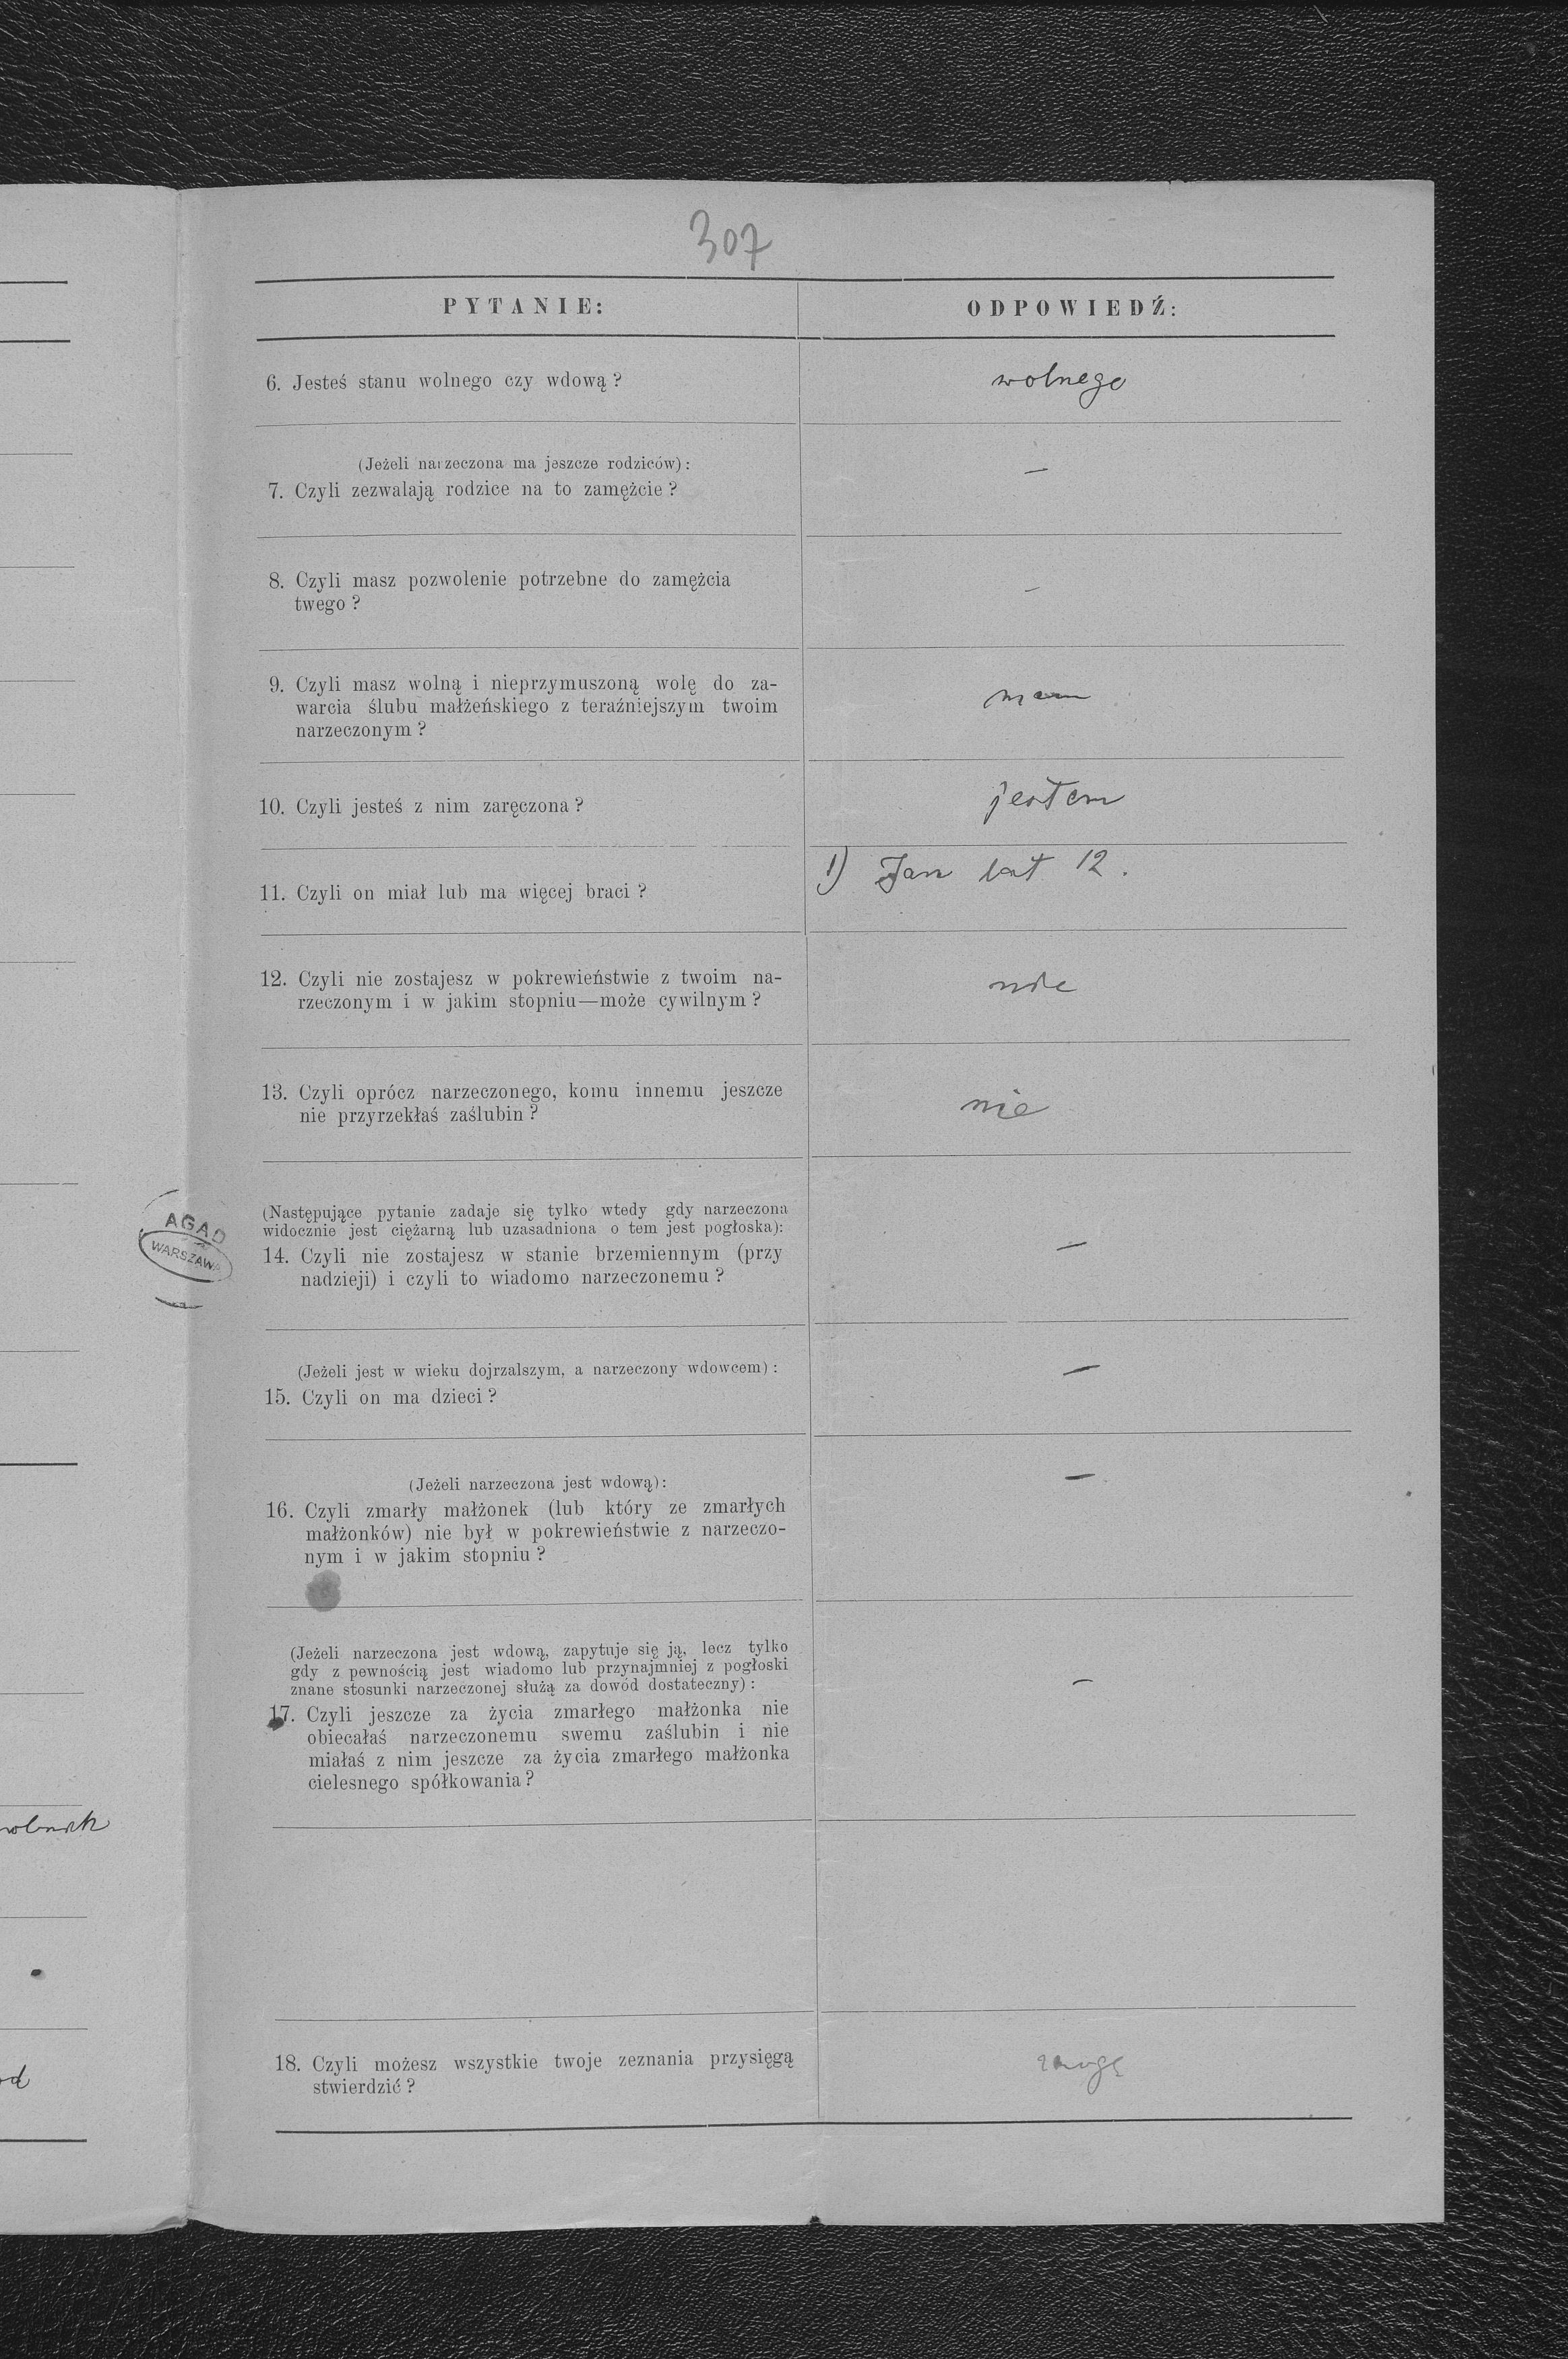 307
PYTANIE:
ODPOWIEDŹ:
6. Jesteś stanu wolnego czy wdową?
wolnego
(Jeżeli narzeczona ma jeszcze rodziców):
7. Czyli zezwalają rodzice na to zamężcie?
—
8. Czyli masz pozwolenie potrzebne do zamężcia
twego?
—
9. Czyli masz wolną i nieprzymuszoną wolę do za-
warcia ślubu małżeńskiego z teraźniejszym twoim
narzeczonym?
mam
10. Czyli jesteś z nim zaręczona?
jestem
11. Czyli on miał lub ma więcej braci?
1) Jan lat 12.
12. Czyli nie zostajesz w pokrewieństwie z twoim na-
rzeczonym i w jakim stopniu—może cywilnym?
nie
13. Czyli oprócz narzeczonego, komu innemu jeszcze
nie przyrzekłaś zaślubin?
nie
AGAD
WARSZAWA
(Następujące pytanie zadaje się tylko wtedy gdy narzeczona
widocznie jest ciężarną lub uzasadniona o tem jest pogłoska):
14. Czyli nie zostajesz w stanie brzemiennym (przy
nadzieji) i czyli to wiadomo narzeczonemu?
—
(Jeżeli jest w wieku dojrzalszym, a narzeczony wdowcem):
15. Czyli on ma dzieci?
—
(Jeżeli narzeczona jest wdową):
16. Czyli zmarły małżonek (lub który ze zmarłych
małżonków) nie był w pokrewieństwie z narzeczo-
nym i w jakim stopniu?
—
(Jeżeli narzeczona jest wdową, zapytuje się ją, lecz tylko
gdy z pewnością jest wiadomo lub przynajmniej z pogłoski
znane stosunki narzeczonej służą za dowód dostateczny):
17. Czyli jeszcze za życia zmarłego małżonka nie
obiecałaś narzeczonemu swemu zaślubin i nie
miałaś z nim jeszcze za życia zmarłego małżonka
cielesnego spółkowania?
—
18. Czyli możesz wszystkie twoje zeznania przysięgą
stwierdzić?
mogę